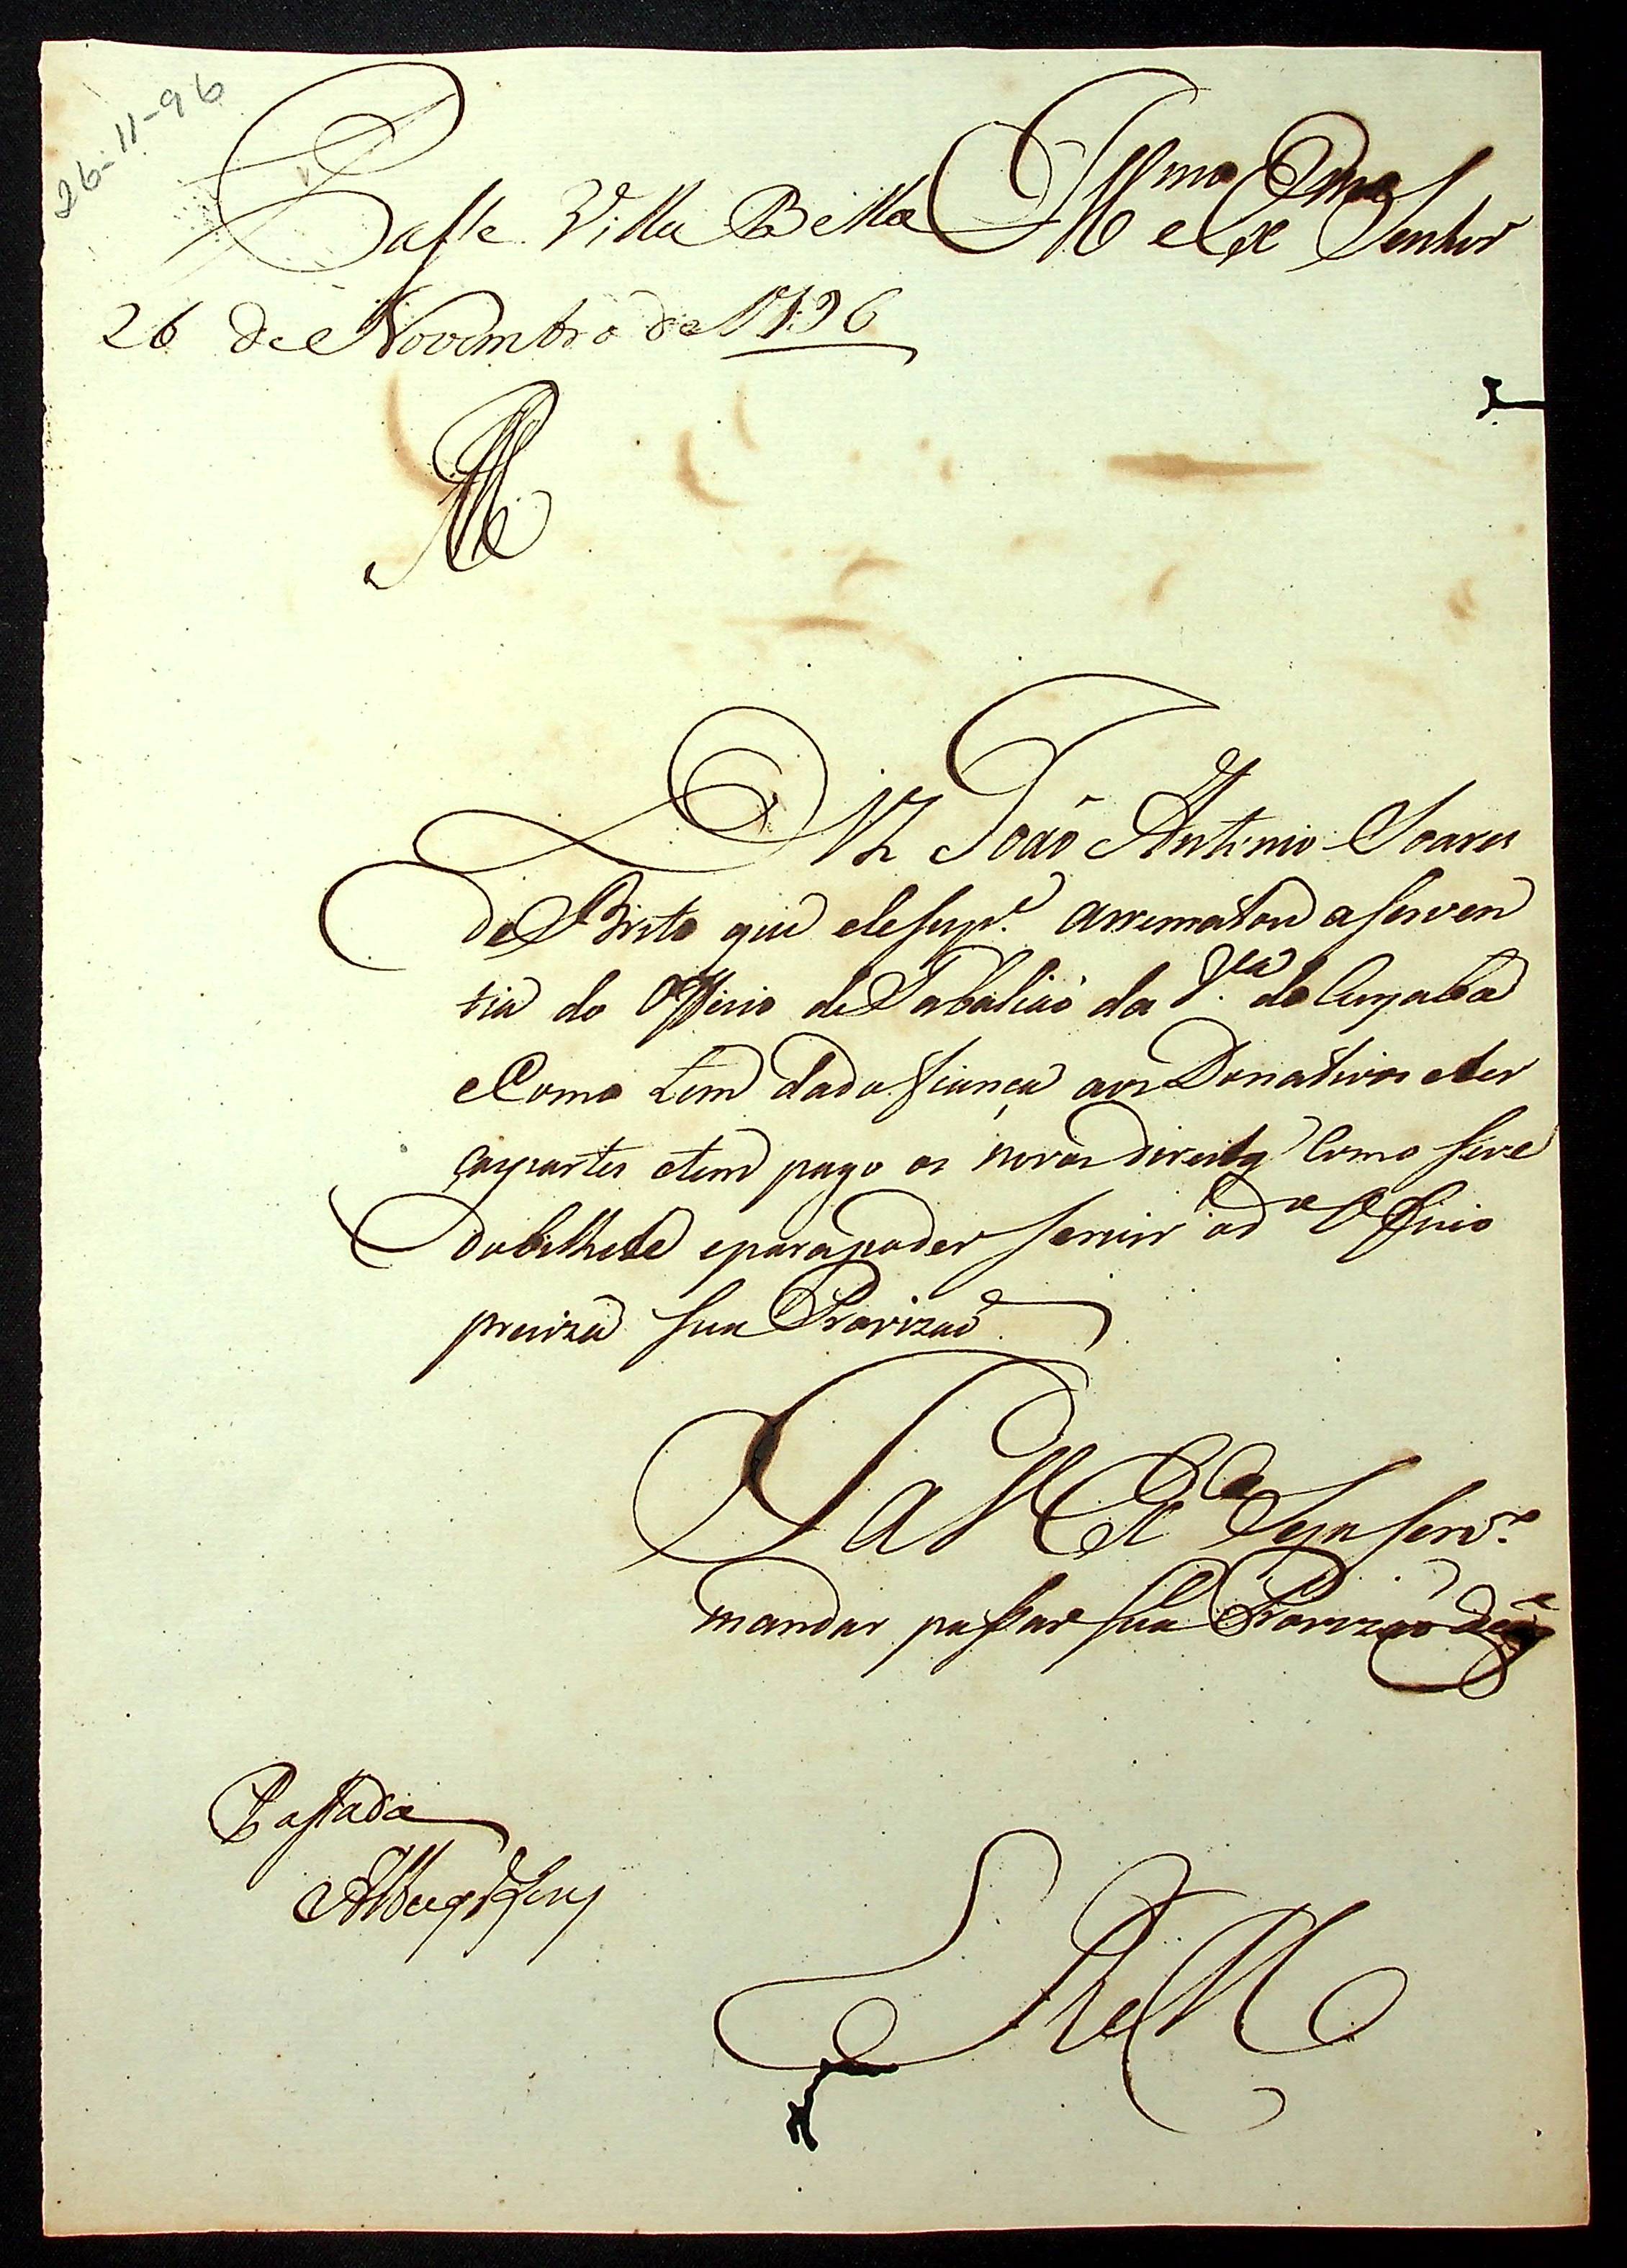 26-11-96
Passe Villa Bella
26 de Novembro de 1796
Illmo e Exmo Senhor
Diz João Antonio Soares
de Brito que ele sup.e arrematou a serven
tia do Officio de Tabaliaõ da V.la do Cuyaba
e Como tem dado fiança aos Donativos e ter
ças partes e tem pago os novos direitos Como seve
do bilhete e para poder servir o d.o Officio
preciza sua Provizaõ
P a V Ex.ca Seja serv.o
mandar passar sua Provizaõ
Passada
E R M